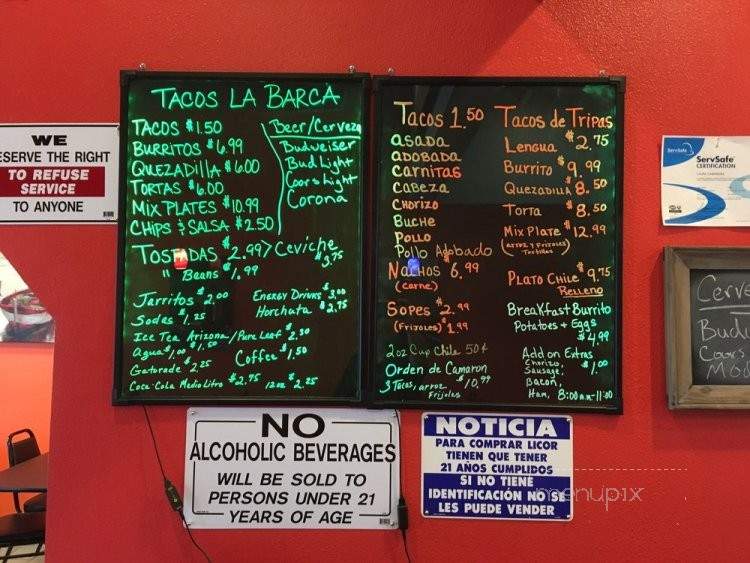 WE
ESERVE THE RIGHT
TO REFUSE
SERVICE
TO ANYONE
TACOS LA BARCA
TACOS $1.50
BURRITOS $6.99
QUEZADILLA $6.00
TORTAS $6.00
MIX PLATES $10.99
CHIPS & SALSA $2.50
Beer/Cerveza
Budweiser
Bud Light
Coors Light
Corona
TOSTADAS $2.99 > Ceviche $3.75
" Beans $1.99
Jarritos $2.00
Sodes $1.25
Ice Tea Arizona/Pure Leaf $2.50
Agua $1.00 $1.50
Gatorade $2.25
Coca-Cola Medio Litro $2.75 12oz $2.25
Energy Drinks $3.00
Horchata $2.75
Coffee $1.50
Tacos 1.50
ASADA
ADOBADA
CARNITAS
CABEZA
CHORIZO
BUCHE
POLLO
Pollo Adobado
Nachos $6.99
(carne)
SOPES $2.99
(Frijoles) $1.99
2oz Cup Chile 50¢
Orden de Camaron
3 Tacos, arroz $10.99
Frijoles
Tacos de Tripas
Lengua $2.75
Burrito $9.99
Quezadilla $8.50
Torta $8.50
Mix Plate $12.99
(arroz y frijoles)
Tortillas
Plato Chile $9.75
Relleno
Breakfast Burrito
Potatoes + Eggs
$4.99
Add on Extras
Chorizo $1.00
Sausage,
Bacon,
Ham, 8:00am-11:00
ServSafe
ServSafe
CERTIFICATION
Cerve
Budw
Coors
Mod
NO
ALCOHOLIC BEVERAGES
WILL BE SOLD TO
PERSONS UNDER 21
YEARS OF AGE
NOTICIA
PARA COMPRAR LICOR
TIENEN QUE TENER
21 AÑOS CUMPLIDOS
SI NO TIENE
IDENTIFICACIÓN NO SE
LES PUEDE VENDER
menupix